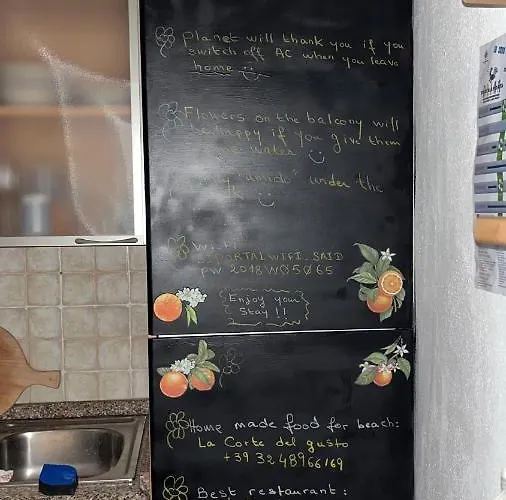 Planet will thank you if you
switch off AC when you leave
home
Flowers on the balcony will
be happy if you give them
water
"umido" under the
WiFi
PORTALWIFI_SAID
PW 2018W05065
Enjoy your
stay !!
Home made food for beach:
La Corte del gusto
+39 3248966169
Best restaurant: